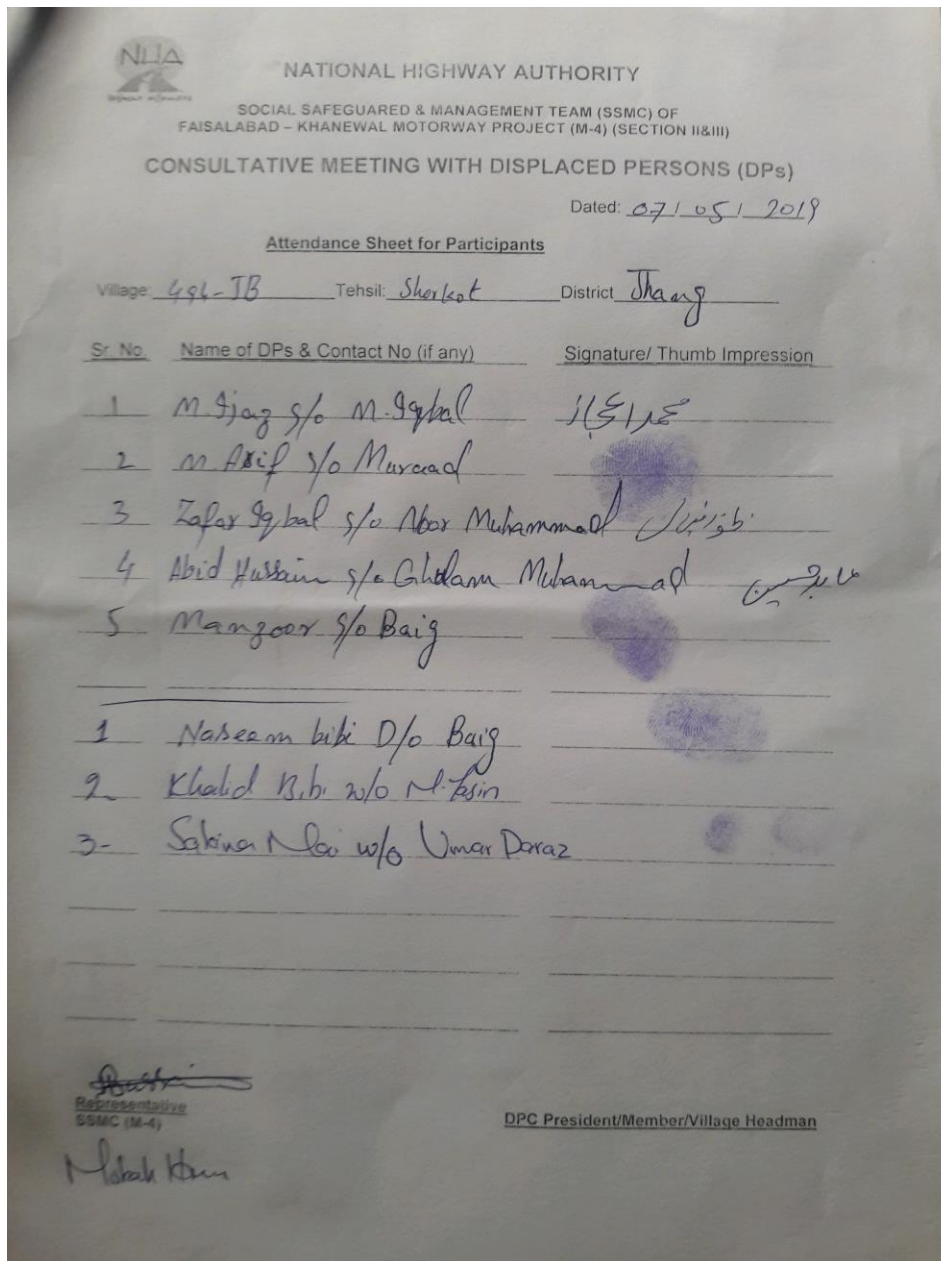 NHA
NATIONAL HIGHWAY AUTHORITY
SOCIAL SAFEGUARED & MANAGEMENT TEAM (SSMC) OF
FAISALABAD – KHANEWAL MOTORWAY PROJECT (M-4) (SECTION II&III)
CONSULTATIVE MEETING WITH DISPLACED PERSONS (DPs)
Dated: 07/05/2019
Attendance Sheet for Participants
Village: Tehsil: Shorkot District Jhang
Sr. No. Name of DPs & Contact No (if any) Signature/ Thumb Impression
1 M. Ijaz s/o M. Iqbal محمد اعجاز
2 M Asif s/o Muraad
3 Zafar Iqbal s/o Muhammad ظفر اقبال
4 Abid Hussain s/o Gholam Muhammad عابد حسین
5 Manzoor s/o Baig
1 Naseem bibi D/o Baig
2 Khalid Bibi w/o M.
3- Sakina Mai w/o Umar Daraz
Representative
SSMC (M-4)
DPC President/Member/Village Headman